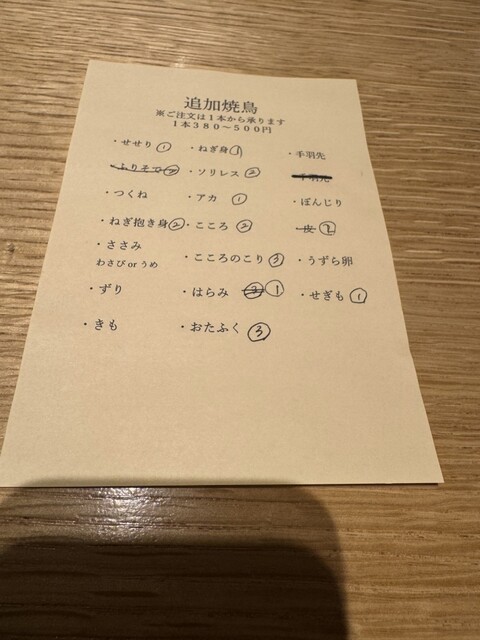 追加焼鳥
※ご注文は1本から承ります
1本380～500円
・せせり ① ・ねぎ身 ① ・手羽先
・ふりそで ・ソリレス ② 手羽先
・つくね ・アカ ① ・ぼんじり
・ねぎ抱き身 ② ・こころ ② ・皮
・ささみ
わさび or うめ ・こころのこり ③ ・うずら卵
・ずり ・はらみ ② ① ・せぎも ①
・きも ・おたふく ③